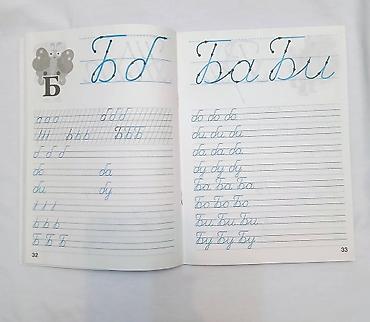 Б б
Б
б б б
бо ба
би бу
Б Б Б
32
Ба Би
бо бо бо
би би би
ба ба ба
бу бу бу
Ба Ба Ба
Бо Бо Бо
Би Би Би
Бу Бу Бу
33